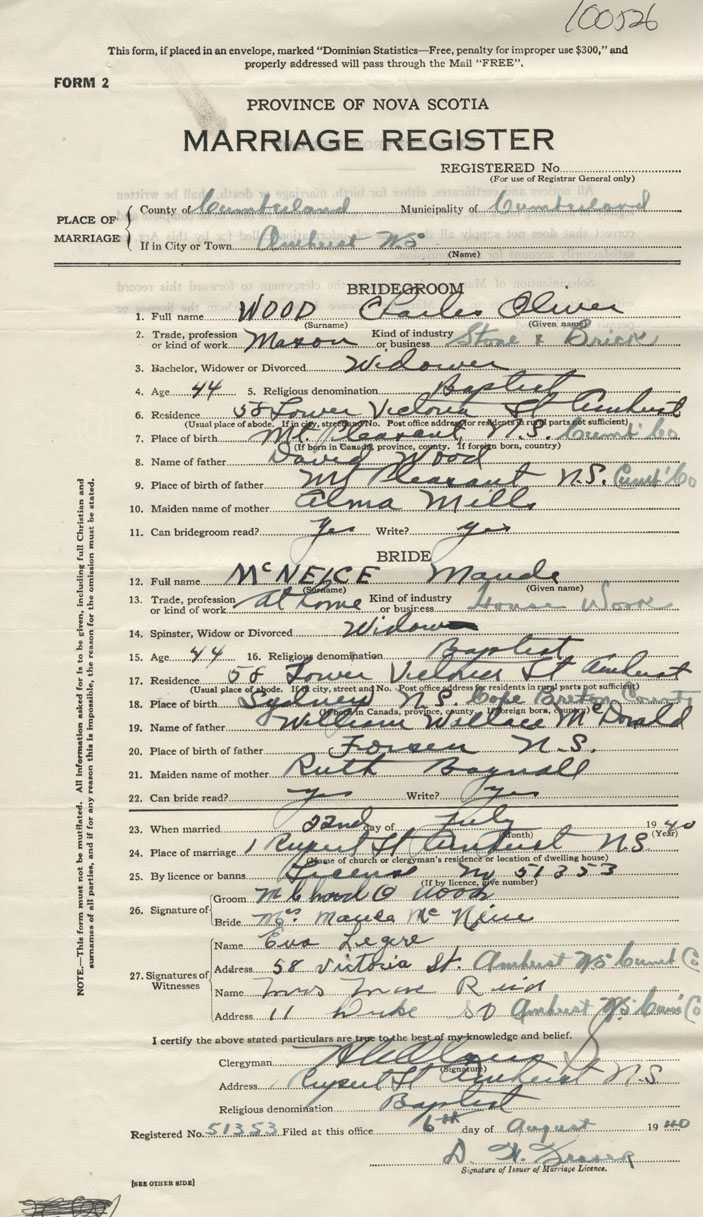 100526
This form, if placed in an envelope, marked "Dominion Statistics—Free, penalty for improper use $300," and
properly addressed will pass through the Mail "FREE".
FORM 2
PROVINCE OF NOVA SCOTIA
MARRIAGE REGISTER
REGISTERED No.
(For use of Registrar General only)
PLACE OF MARRIAGE
County of Cumberland Municipality of Cumberland
If in City or Town Amherst NS
(Name)
BRIDEGROOM
1. Full name WOOD Charles Oliver
(Surname) (Given name)
2. Trade, profession or kind of work Mason Kind of industry or business Stone & Brick
3. Bachelor, Widower or Divorced Widower
4. Age 44 5. Religious denomination Baptist
6. Residence 58 Lower Victoria St Amherst
(Usual place of abode. If in city, street and No. Post office address for residents in rural parts not sufficient)
7. Place of birth Mt. Pleasant, N.S. Cumb' Co
(If born in Canada, province, county. If foreign born, country)
8. Name of father David Wood
9. Place of birth of father Mt Pleasant N.S. Cumb' Co
10. Maiden name of mother Alma Mills
11. Can bridegroom read? Yes Write? yes
BRIDE
12. Full name McNEICE Maude
(Surname) (Given name)
13. Trade, profession or kind of work at home Kind of industry or business House Work
14. Spinster, Widow or Divorced Widow
15. Age 44 16. Religious denomination Baptist
17. Residence 58 Lower Victoria St Amherst
(Usual place of abode. If in city, street and No. Post office address for residents in rural parts not sufficient)
18. Place of birth Sydney N.S. Cape Breton County
(If born in Canada, province, county. If foreign born, country)
19. Name of father William Wallace McDonald
20. Place of birth of father N.S.
21. Maiden name of mother Ruth Bagnall
22. Can bride read? yes Write? yes
23. When married 22nd day of July 1940
(Month) (Year)
24. Place of marriage 1 Rupert St Amherst N.S.
(Name of church or clergyman's residence or location of dwelling house)
25. By licence or banns License No 51353
(If by licence, give number)
26. Signature of
Groom O Wood
Bride Mrs Maude McNeice
27. Signatures of Witnesses
Name Eva Legere
Address 58 Victoria St. Amherst NS Cumb Co
Name Mrs Reid
Address 11 Duke St Amherst NS Cum' Co
I certify the above stated particulars are true to the best of my knowledge and belief.
Clergyman
(Signature)
Address Rupert St Amherst N.S.
Religious denomination Baptist
Registered No. 51353 Filed at this office 6th day of August 1940
Signature of Issuer of Marriage Licence.
[SEE OTHER SIDE]
NOTE.—This form must not be mutilated. All information asked for is to be given, including full Christian and
surnames of all parties, and if for any reason this is impossible, the reason for the omission must be stated.